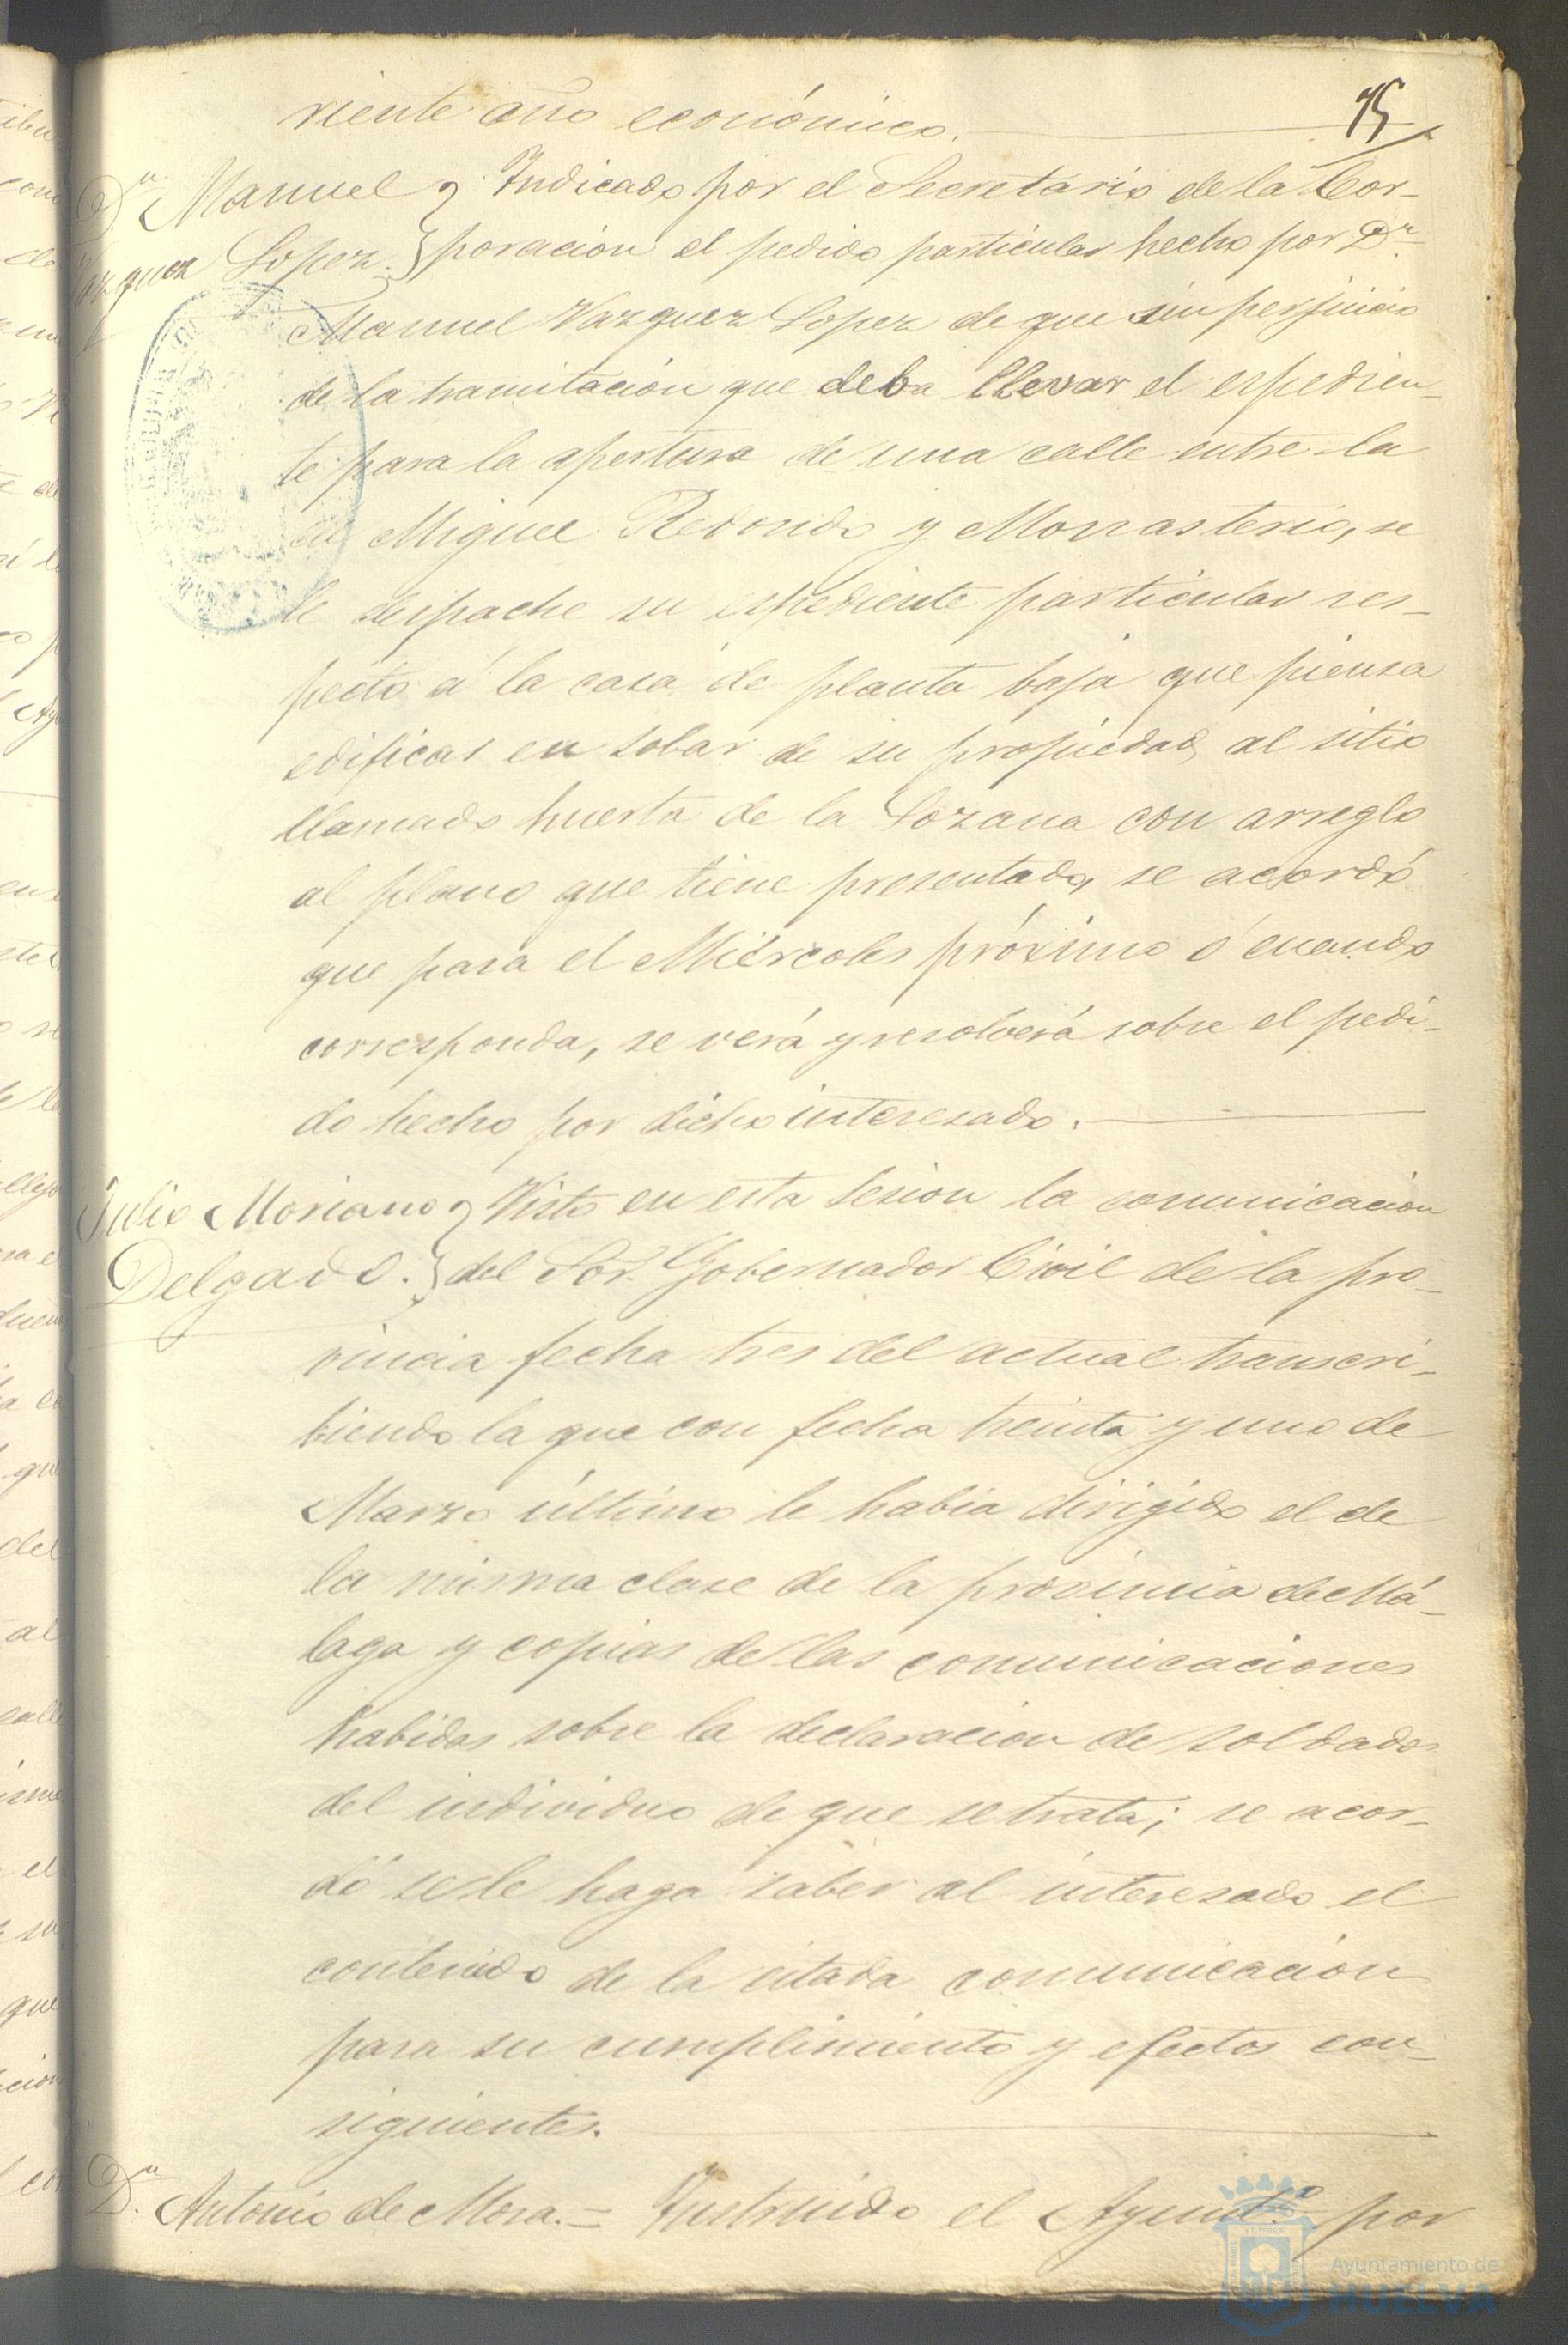 75
riente año económico.
Dn. Manuel Indicado por el Secretario de la Cor-
Vazquez Lopez. poracion el pedido particular hecho por Dn.
Manuel Vazquez Lopez de que sin perjuicio
de la tramitación que deba llevar el espedien-
te para la apertura de una calle entre la
de Miguel Redondo y Monasterio, se
le despache su espediente particular res-
pecto á la casa de planta baja que piensa
edificar en solar de su propiedad al sitio
llamado huerta de la Lozana con arreglo
al plano que tiene presentado, se acordó
que para el Miércoles próximo ó cuando
corresponda, se verá y resolverá sobre el pedi-
do hecho por dicho interesado.
Julio Moriano Visto en esta sesion la comunicacion
Delgado. del Sor. Gobernador Civil de la pro-
vincia fecha tres del actual transcri-
biendo la que con fecha treinta y uno de
Marzo último le habia dirigido el de
la misma clase de la provincia de Má-
laga y copias de las comunicaciones
habidas sobre la declaracion de soldados
del individuo de que se trata; se acor-
dó se le haga saber al interesado el
contenido de la citada comunicación
para su cumplimiento y efectos con-
siguientes.
Dn. Antonio de Mora.= Instruido el Ayuntº. por
Ayuntamiento de
HUELVA